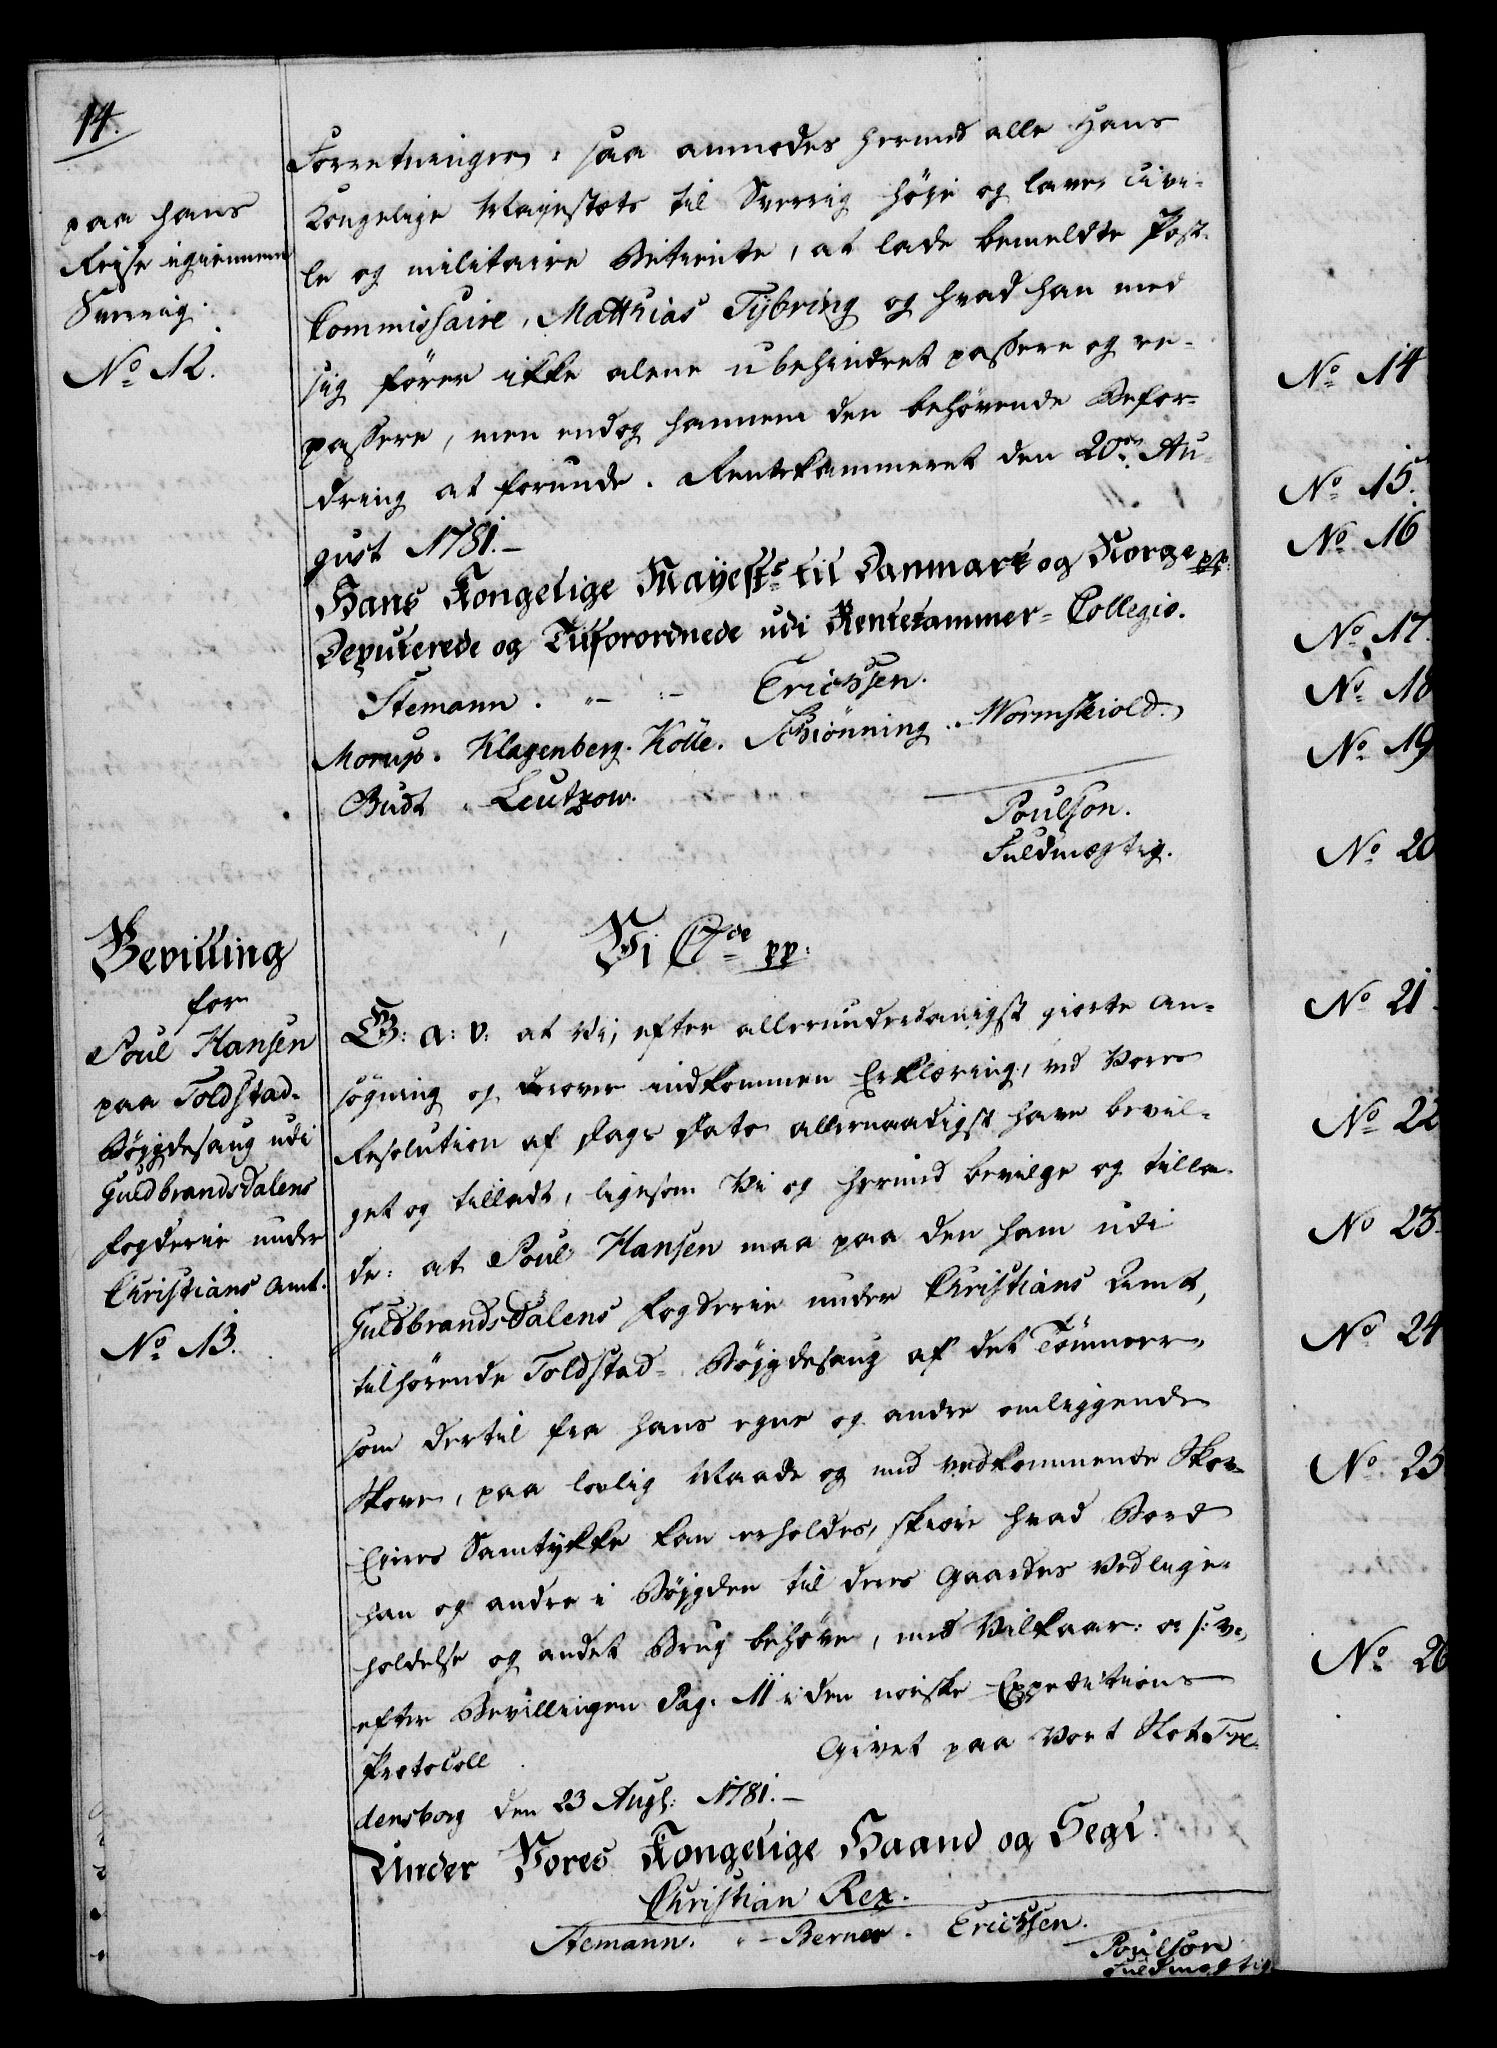 14.
paa hans
Reise igiennem
Sverrig.
No 12.
Forretninger, saa anmodes hermed alle Hans
Kongelige Mayestæts til Sverrig höje og lave, civi-
le og militaire Betiente, at lade bemeldte Post-
Commissaire, Matthias Tybring og hvad han med
sig förer ikke alene ubehindret passere og re-
passere, men endog hannem den behövende Befor-
dring at forunde. Rentekammeret den 20de Au-
gust 1781.-
Hans Kongelige Mayests til Danmark og Norge pp:
Deputerede og Tilforordnede udi Rentekammer-Collegio.
Stemann. Erichsen.
Morup. Klagenberg. Kölle. Schiönning. Wormskiold.
Budt. Leutzow.
Poulson.
Fuldmægtig.
Bevilling
for
Poul Hansen
paa Toldstad-
Böygdesaug udi
Guldbrandsdalens
fogderie under
Christians Amt.
No 13.
Vi C 7de pp:
G: a: v: at Vi, efter allerunderdanigst giorte An-
sögning og derover indkommen Erklæring, ved Vores
Resolution af Dags Dato allernaadigst have bevil-
get og tilladt, ligesom Vi og hermed bevilge og tilla-
de: at Poul Hansen maa paa den ham udi
Guldbrandsdalens fogderie under Christians Amt,
tilhörende Toldstad-Böygdesaug af det Tömmer,
som dertil fra hans egne og andre omliggende
Skove, paa lovlig Maade og med vedkommende Skov-
Eieres Samtykke kan erholdes, skiære hvad Bord
han og andre i Böygden til deres Gaardes Vedlige-
holdelse og andet Brug behöve, med Vilkaar: o: s: v:,
efter Bevillingen Pag. 11 i den norske Expeditions
Protocoll. Givet paa Vort Slot Fre-
densborg den 23 Augs: 1781.-
Under Vores Kongelige Haand og Segl.
Christian Rex.
Stemann. Berner. Erichsen.
Poulson
Fuldmægtig
No 14
No 15.
No 16
No 17.
No 18
No 19
No 20
No 21
No 22
No 23
No 24
No 25
No 26